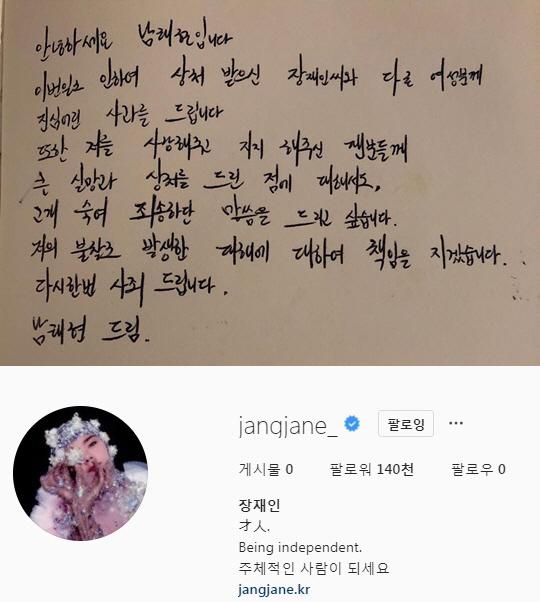 안녕하세요 남태현입니다
이번일로 인하여 상처 받으신 장재인씨와 다른 여성분께
진심어린 사과를 드립니다
또한 저를 사랑해주고 지지 해주신 팬분들께
큰 실망과 상처를 드린 점에 대해서도,
고개 숙여 죄송하단 말씀을 드리고 싶습니다.
저의 불찰로 발생한 피해에 대하여 책임을 지겠습니다.
다시한번 사죄 드립니다.
남태현 드림.
jangjane_ 팔로잉
게시물 0 팔로워 140천 팔로우 0
장재인
才人.
Being independent.
주체적인 사람이 되세요
jangjane.kr